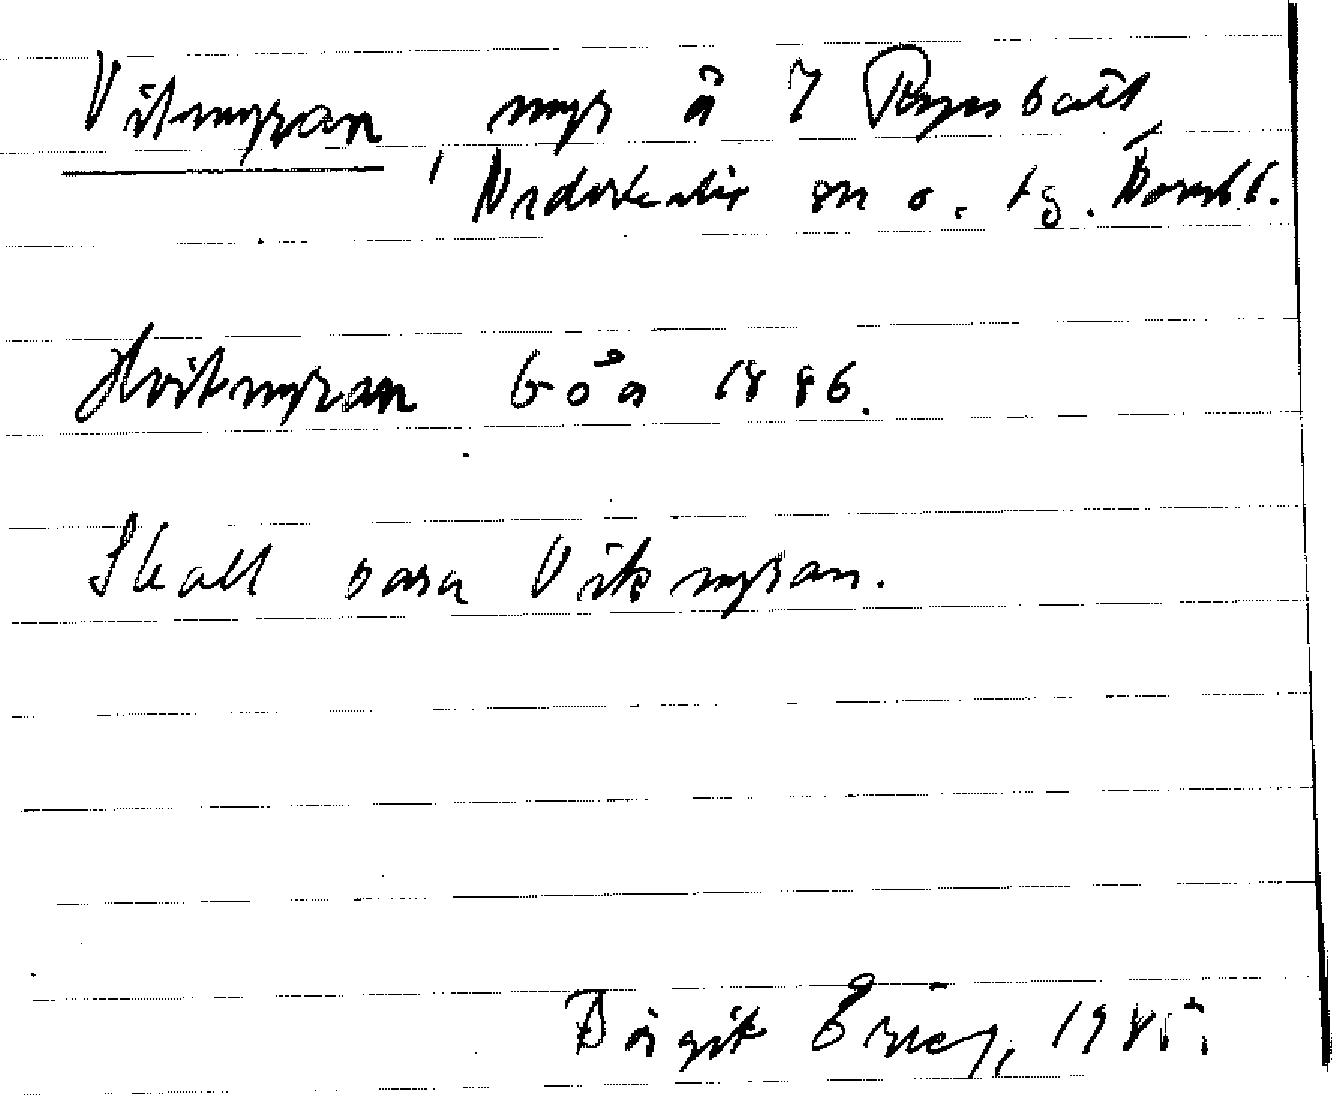 Vitmyran, myr å 7 Rynbäck
Nederkalix sn o. tg. Norrb.
Hvitmyran GöA 1886.
Skall vara Vitmyran.
Birgit Eriej, 1985.